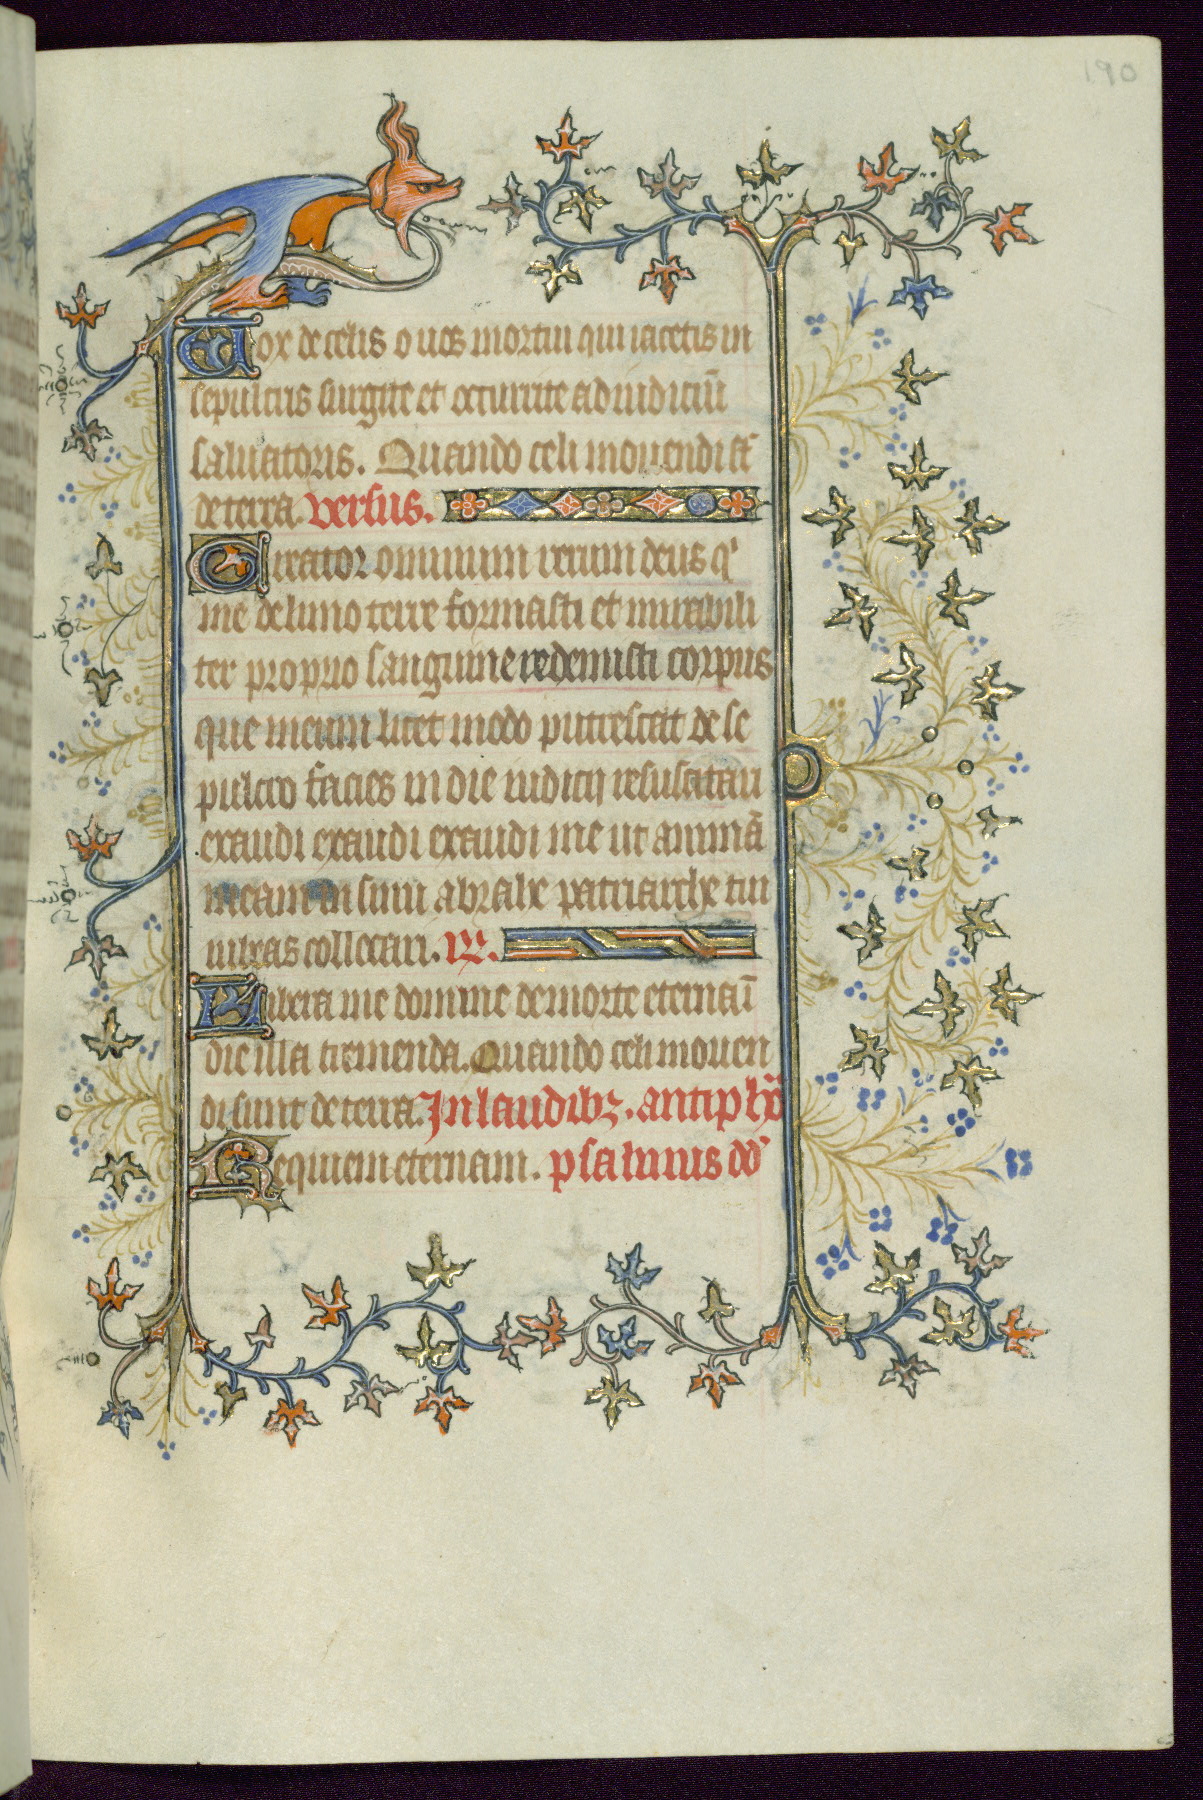 190
Vox de celis o uos mortui qui iacetis in
sepulcris surgite et occurrite ad iudiciū
saluatoris. Quando celi mouendi sūt
de terra. versus.
Creator omnium rerum deus qⁱ
me de limo terre formasti et mirabili
ter proprio sanguine redemisti corpus
que meum licet modo putrescat de se
pulcro facies in die iudicij resuscitari
exaudi exaudi exaudi me ut animā
meam in sinu abrahe patriarche tui
iubeas collocari. R.
Libera me domine de morte eterna ī
die illa tremenda. Quando celi mouen
di sunt de terra. In laudibȝ. antiph̄
Requiem eternam. psalmus dd̾